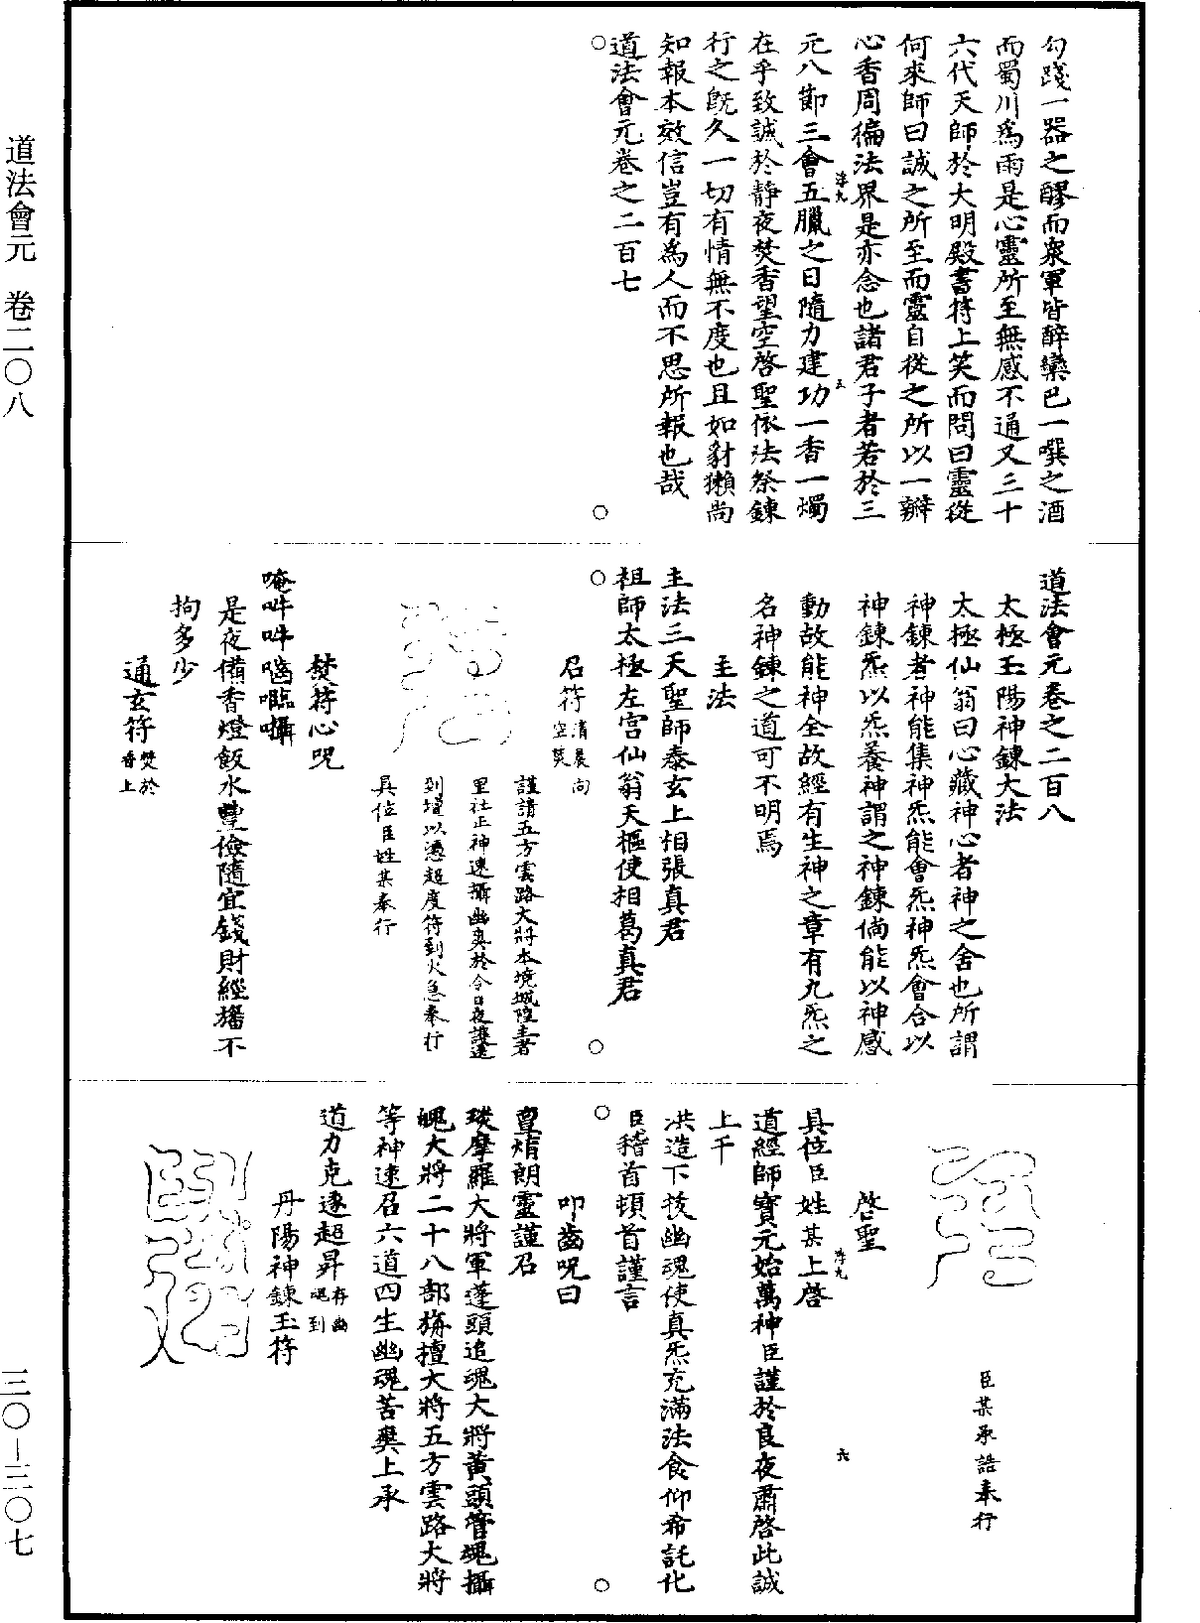 道法會元　卷二〇八
三〇—三〇七
勾踐一器之醪而衆軍皆醉欒巴一噀之酒
而蜀川爲雨是心靈所至無感不通又三十
六代天師於大明殿書符上笑而問曰靈從
何來師曰誠之所至而靈自從之所以一瓣
心香周徧法界是亦念也諸君子者若於三
元八節三會五臘之日隨力建功一香一燭
在乎致誠於靜夜焚香望空啓聖依法祭鍊
行之旣久一切有情無不度也且如豺獺尚
知報本效信豈有爲人而不思所報也哉
道法會元卷之二百七
道法會元卷之二百八
太極玉陽神鍊大法
太極仙翁曰心藏神心者神之舍也所謂
神鍊者神能集神炁能會炁神炁會合以
神鍊炁以炁養神謂之神鍊倘能以神感
動故能神全故經有生神之章有九炁之
名神鍊之道可不明焉
主法
主法三天聖師泰玄上相張真君
祖師太極左宮仙翁天樞使相葛真君
召符清晨向空焚
謹請五方雲路大將本境城隍主者
里社正神速攝幽爽於今日夜護送
到壇以憑超度符到火急奉行
具位臣姓某奉行
焚符心呪
唵吽吽囕囕囁
是夜備香燈飯水豐儉隨宜錢財經旛不
拘多少
通玄符焚於香上
臣某承誥奉行
啓聖
具位臣姓某上啓
道經師寶元始萬神臣謹於良夜肅啓此誠
上干
洪造下拔幽魂使真炁充滿法食仰希託化
臣稽首頓首謹言
叩齒呪曰
亶焴朗靈謹召
琰摩羅大將軍蓬頭追魂大將黃頭管魂攝
魄大將二十八部旃檀大將五方雲路大將
等神速召六道四生幽魂苦爽上承
道力克遂超昇存幽魂到
丹陽神鍊玉符